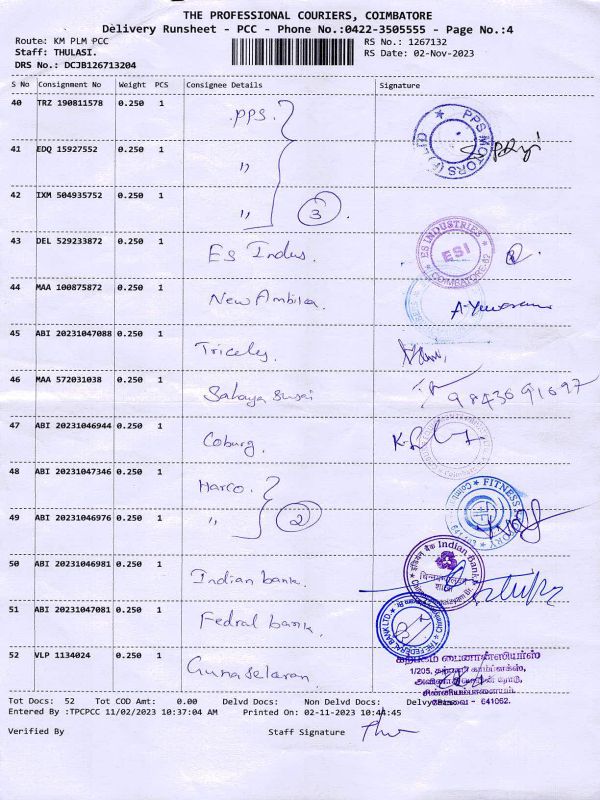 THE PROFESSIONAL COURIERS, COIMBATORE
Delivery Runsheet - PCC - Phone No.:0422-3505555 - Page No.:4
Route: KM PLM PCC
RS No.: 1267132
Staff: THULASI.
RS Date: 02-Nov-2023
DRS No.: DCJB126713204
S No Consignment No Weight PCS Consignee Details Signature
40 TRZ 190811578 0.250 1 PPS. PPS MOTORS (P) LTD
41 EDQ 15927552 0.250 1 "
42 IXM 504935752 0.250 1 " 3
43 DEL 529233872 0.250 1 Es Indus. ES INDUSTRIES ESI COIMBATORE-62
44 MAA 100875872 0.250 1 New Ambika
45 ABI 20231047088 0.250 1
46 MAA 572031038 0.250 1 Sahaya Susai 9843691697
47 ABI 20231046944 0.250 1 Coburg.
48 ABI 20231047346 0.250 1 Marco. FITNESS
49 ABI 20231046976 0.250 1 " 2
50 ABI 20231046981 0.250 1 Indian bank. Indian Bank इंडियन बैंक
51 ABI 20231047081 0.250 1 Fedral bank. THE FEDERAL BANK LTD.
52 VLP 1134024 0.250 1 Gunaselaran கற்பகம் பைனான்ஸியர்ஸ்
சின்னியம்பாளையம்,
கோவை - 641062.
Tot Docs: 52 Tot COD Amt: 0.00 Delvd Docs: Non Delvd Docs:
Entered By :TPCPCC 11/02/2023 10:37:04 AM Printed On: 02-11-2023 10:44:45
Verified By Staff Signature